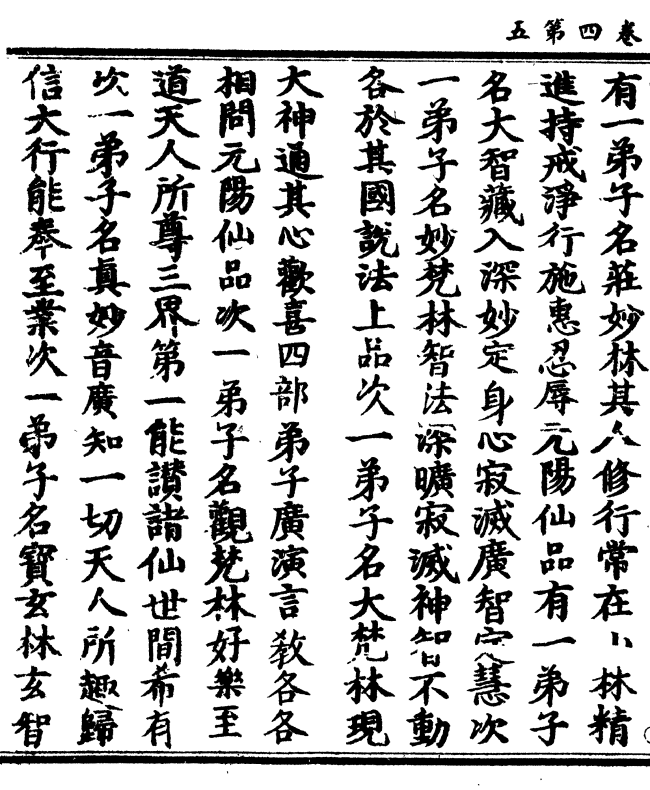 卷四第五
有一弟子名莊妙林其人修行常在山林精
進持戒淨行施惠忍辱元陽仙品有一弟子
名大智藏入深妙定身心寂滅廣智定慧次
一弟子名妙梵林智法深曠寂滅神智不動
各於其國說法上品次一弟子名大梵林現
大神通其心歡喜四部弟子廣演言教各各
相問元陽仙品次一弟子名觀梵林好樂至
道天人所尊三界第一能讚諸仙世間希有
次一弟子名真妙音廣知一切天人所趣歸
信大行能奉至業次一弟子名寶玄林玄智